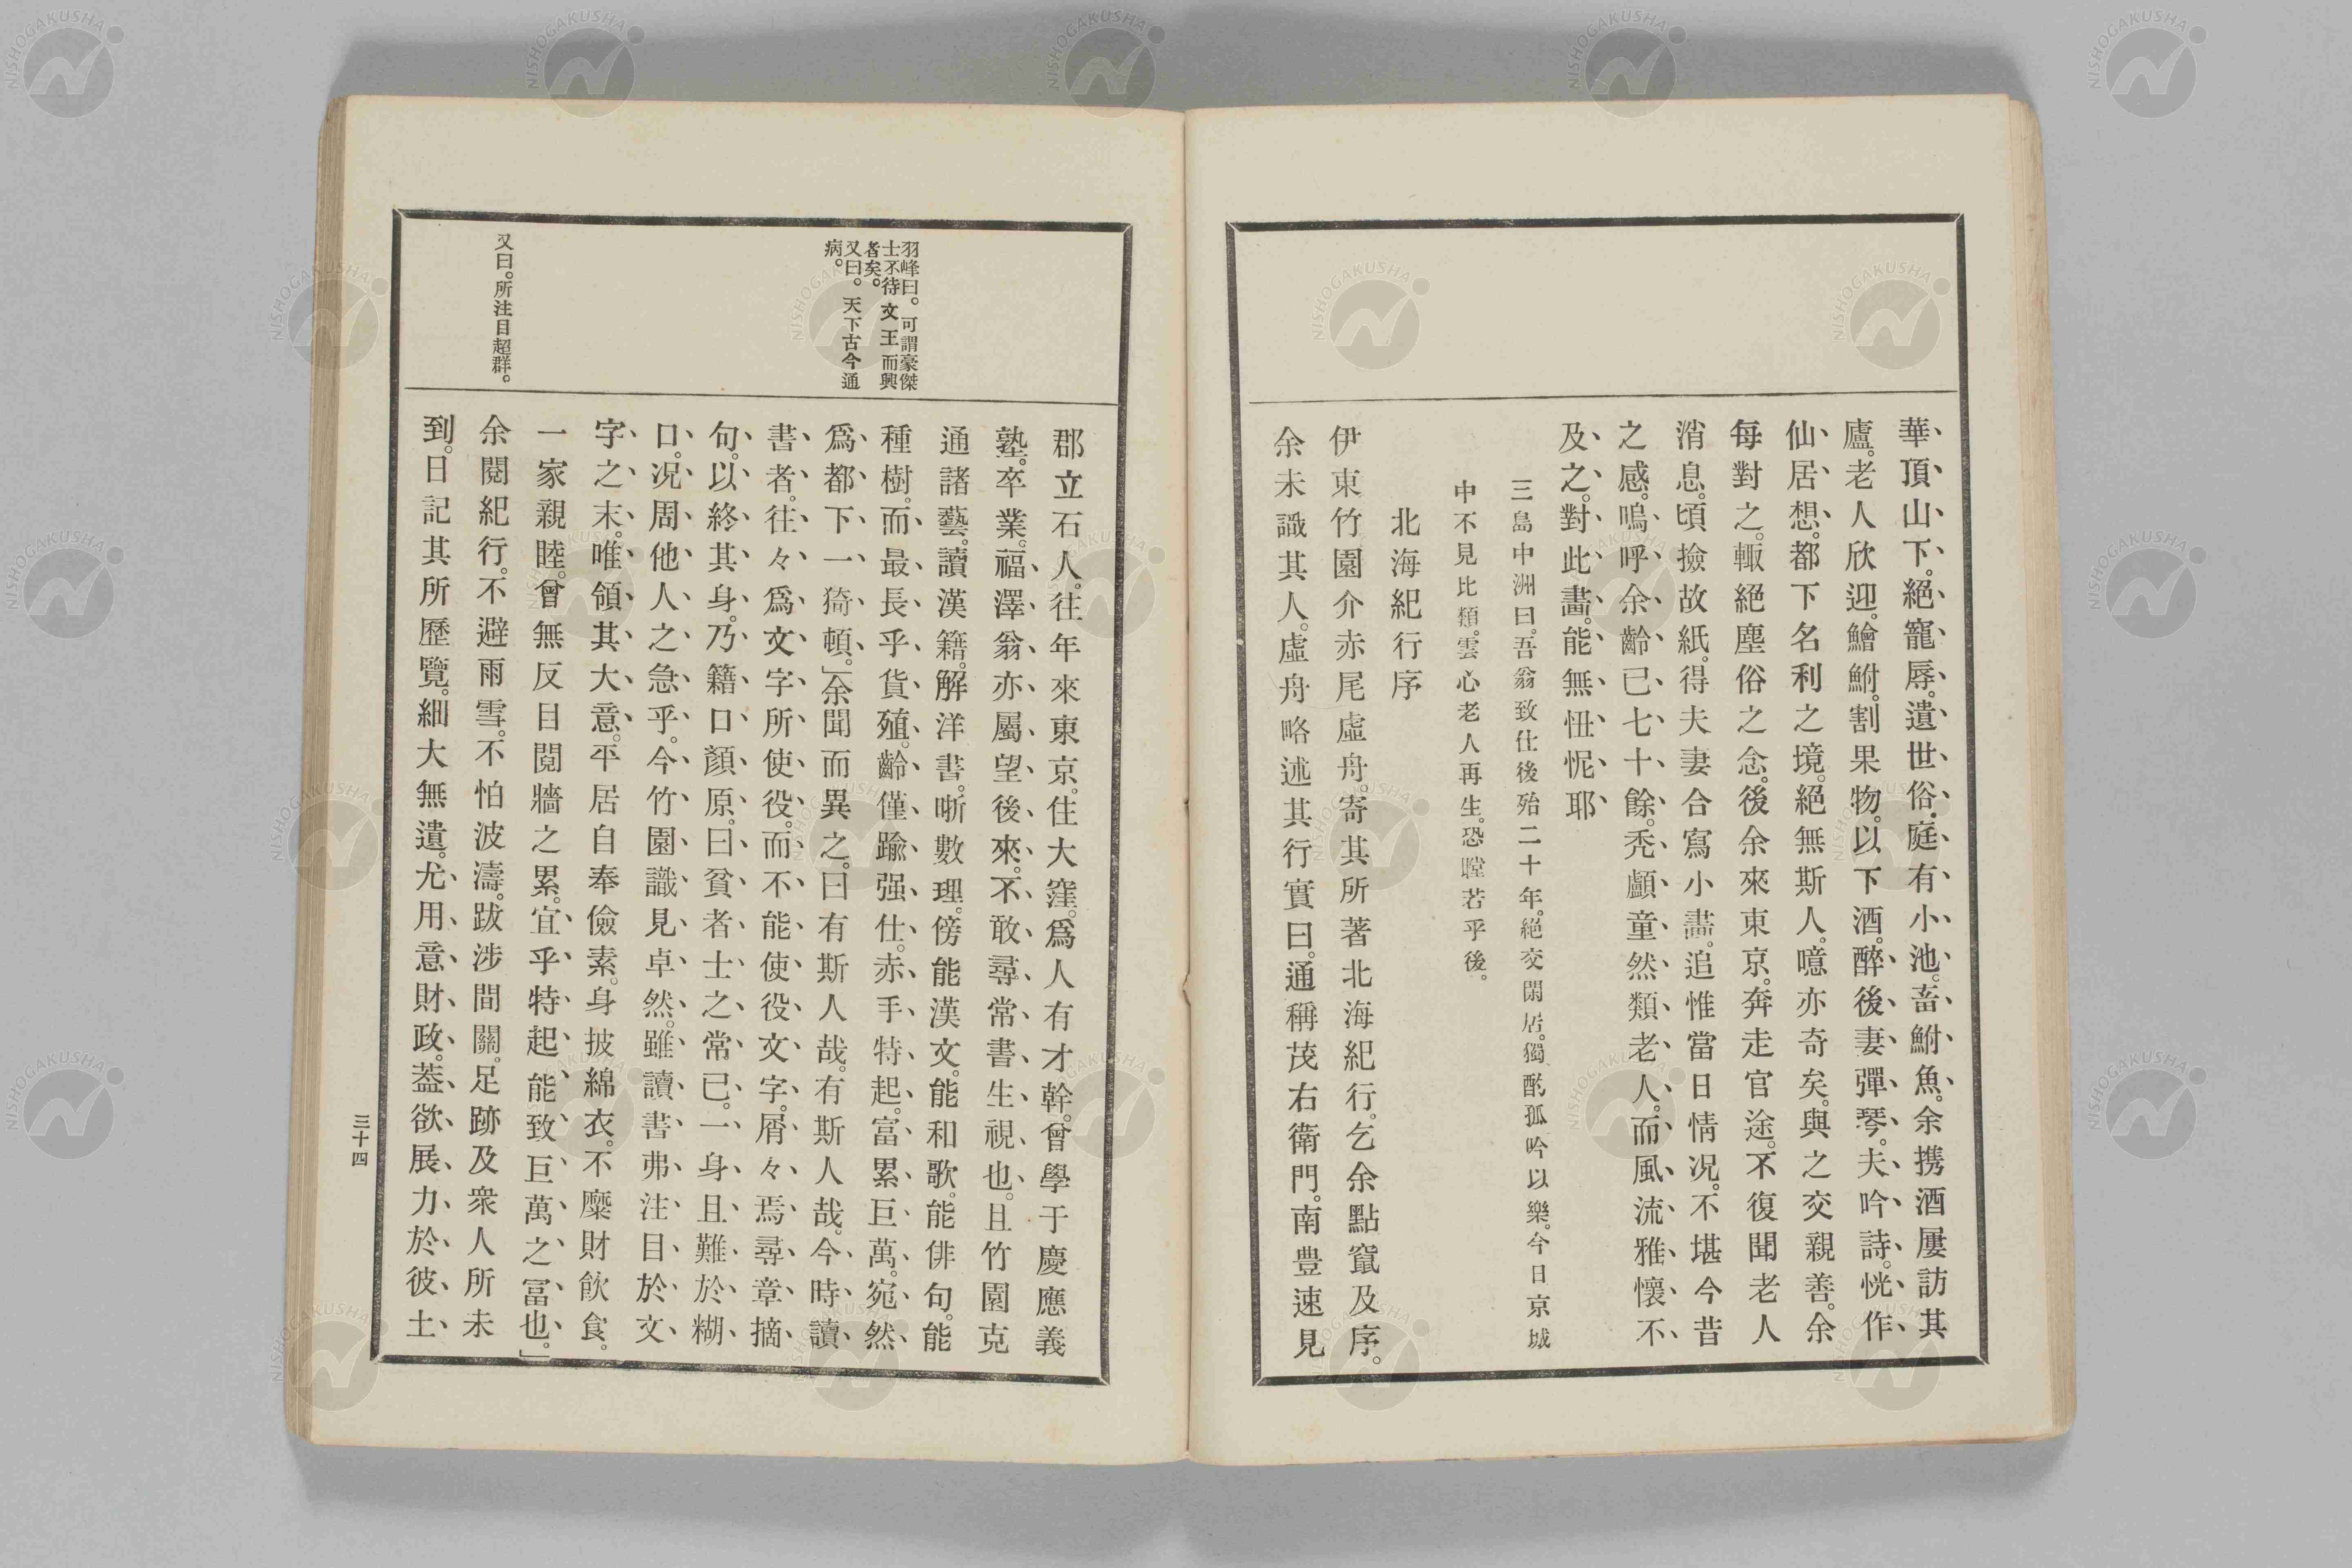 華頂山下。絕寵辱。遺世俗。庭有小池。畜鮒魚。余携酒屢訪其
廬。老人欣迎。鱠鮒。割果物。以下酒。醉後妻彈琴。夫吟詩。恍作
仙居想。都下名利之境。絕無斯人。噫亦奇矣。與之交親善。余
每對之。輙絕塵俗之念。後余來東京。奔走官途。不復聞老人
消息。頃撿故紙。得夫妻合寫小畵。追惟當日情况。不堪今昔
之感。嗚呼余齡已七十餘。禿顱童然類老人。而風流雅懷不
及之。對此畵。能無忸怩耶
三島中洲曰。吾翁致仕後殆二十年。絕交閑居。獨酌孤吟以樂。今日京城
中不見比類。雲心老人再生。恐瞠若乎後。
北海紀行序
伊東竹園介赤尾虛舟。寄其所著北海紀行。乞余點竄及序。
余未識其人。虛舟略述其行實曰。通稱茂右衛門。南豊速見
羽峰曰。可謂豪傑
士不待文王而興
者矣。
又曰。天下古今通
病。
又曰。所注目超群。
郡立石人。往年來東京。住大窪。爲人有才幹。曾學于慶應義
塾。卒業。福澤翁亦屬望後來。不敢尋常書生視也。且竹園克
通諸藝。讀漢籍。解洋書。晰數理。傍能漢文。能和歌。能俳句。能
種樹。而最長乎貨殖。齡僅踰强仕。赤手特起。富累巨萬。宛然
爲都下一猗頓。」余聞而異之。曰有斯人哉。有斯人哉。今時讀
書者。往々爲文字所使役。而不能使役文字。屑々焉尋章摘
句。以終其身。乃籍口顏原。曰貧者士之常已。一身且難於糊
口。况周他人之急乎。今竹園識見卓然。雖讀書弗注目於文
字之末。唯領其大意。平居自奉儉素。身披綿衣。不糜財飮食。
一家親睦。曾無反目鬩牆之累。宜乎特起能致巨萬之冨也。」
余閱紀行。不避雨雪。不怕波濤。跋涉間關。足跡及衆人所未
到。日記其所歷覽。細大無遺。尤用意財政。葢欲展力於彼土
三十四
NISHOGAKUSHA